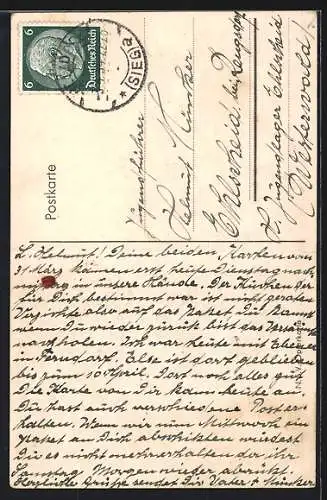 6 6
Deutsches Reich
(SIEG) a
Postkarte
Jugendführer
Helmut
Ehlscheid bei Rengsdorf
H. Jugendlager Ehlscheid
(Westerwald)
L. Helmut! Deine beiden Karten vom
31 März kamen erst heute Dienstag nach-
mittag in unsere Hände. Der Kuchen der
für Dich bestimmt war ist nicht geraten
Verzichte also auf das Paket Du kannst
wenn Du wieder zurück bist das Versäumte
nachholen. Ich war heute mit
in Ferndorf. Else ist dort geblieben
bis zum 10 April. Dort noch alles gut.
Die Karte von Dir kam heute an.
Du hast auch verschiedene Post er-
halten. Wenn wir nun Mittwoch ein
Paket an Dich abschickten würdest
Du es nicht mehr erhalten da ihr
Samstag Morgen wieder abrückt.
Herzliche Grüße sendet Dir Vater +